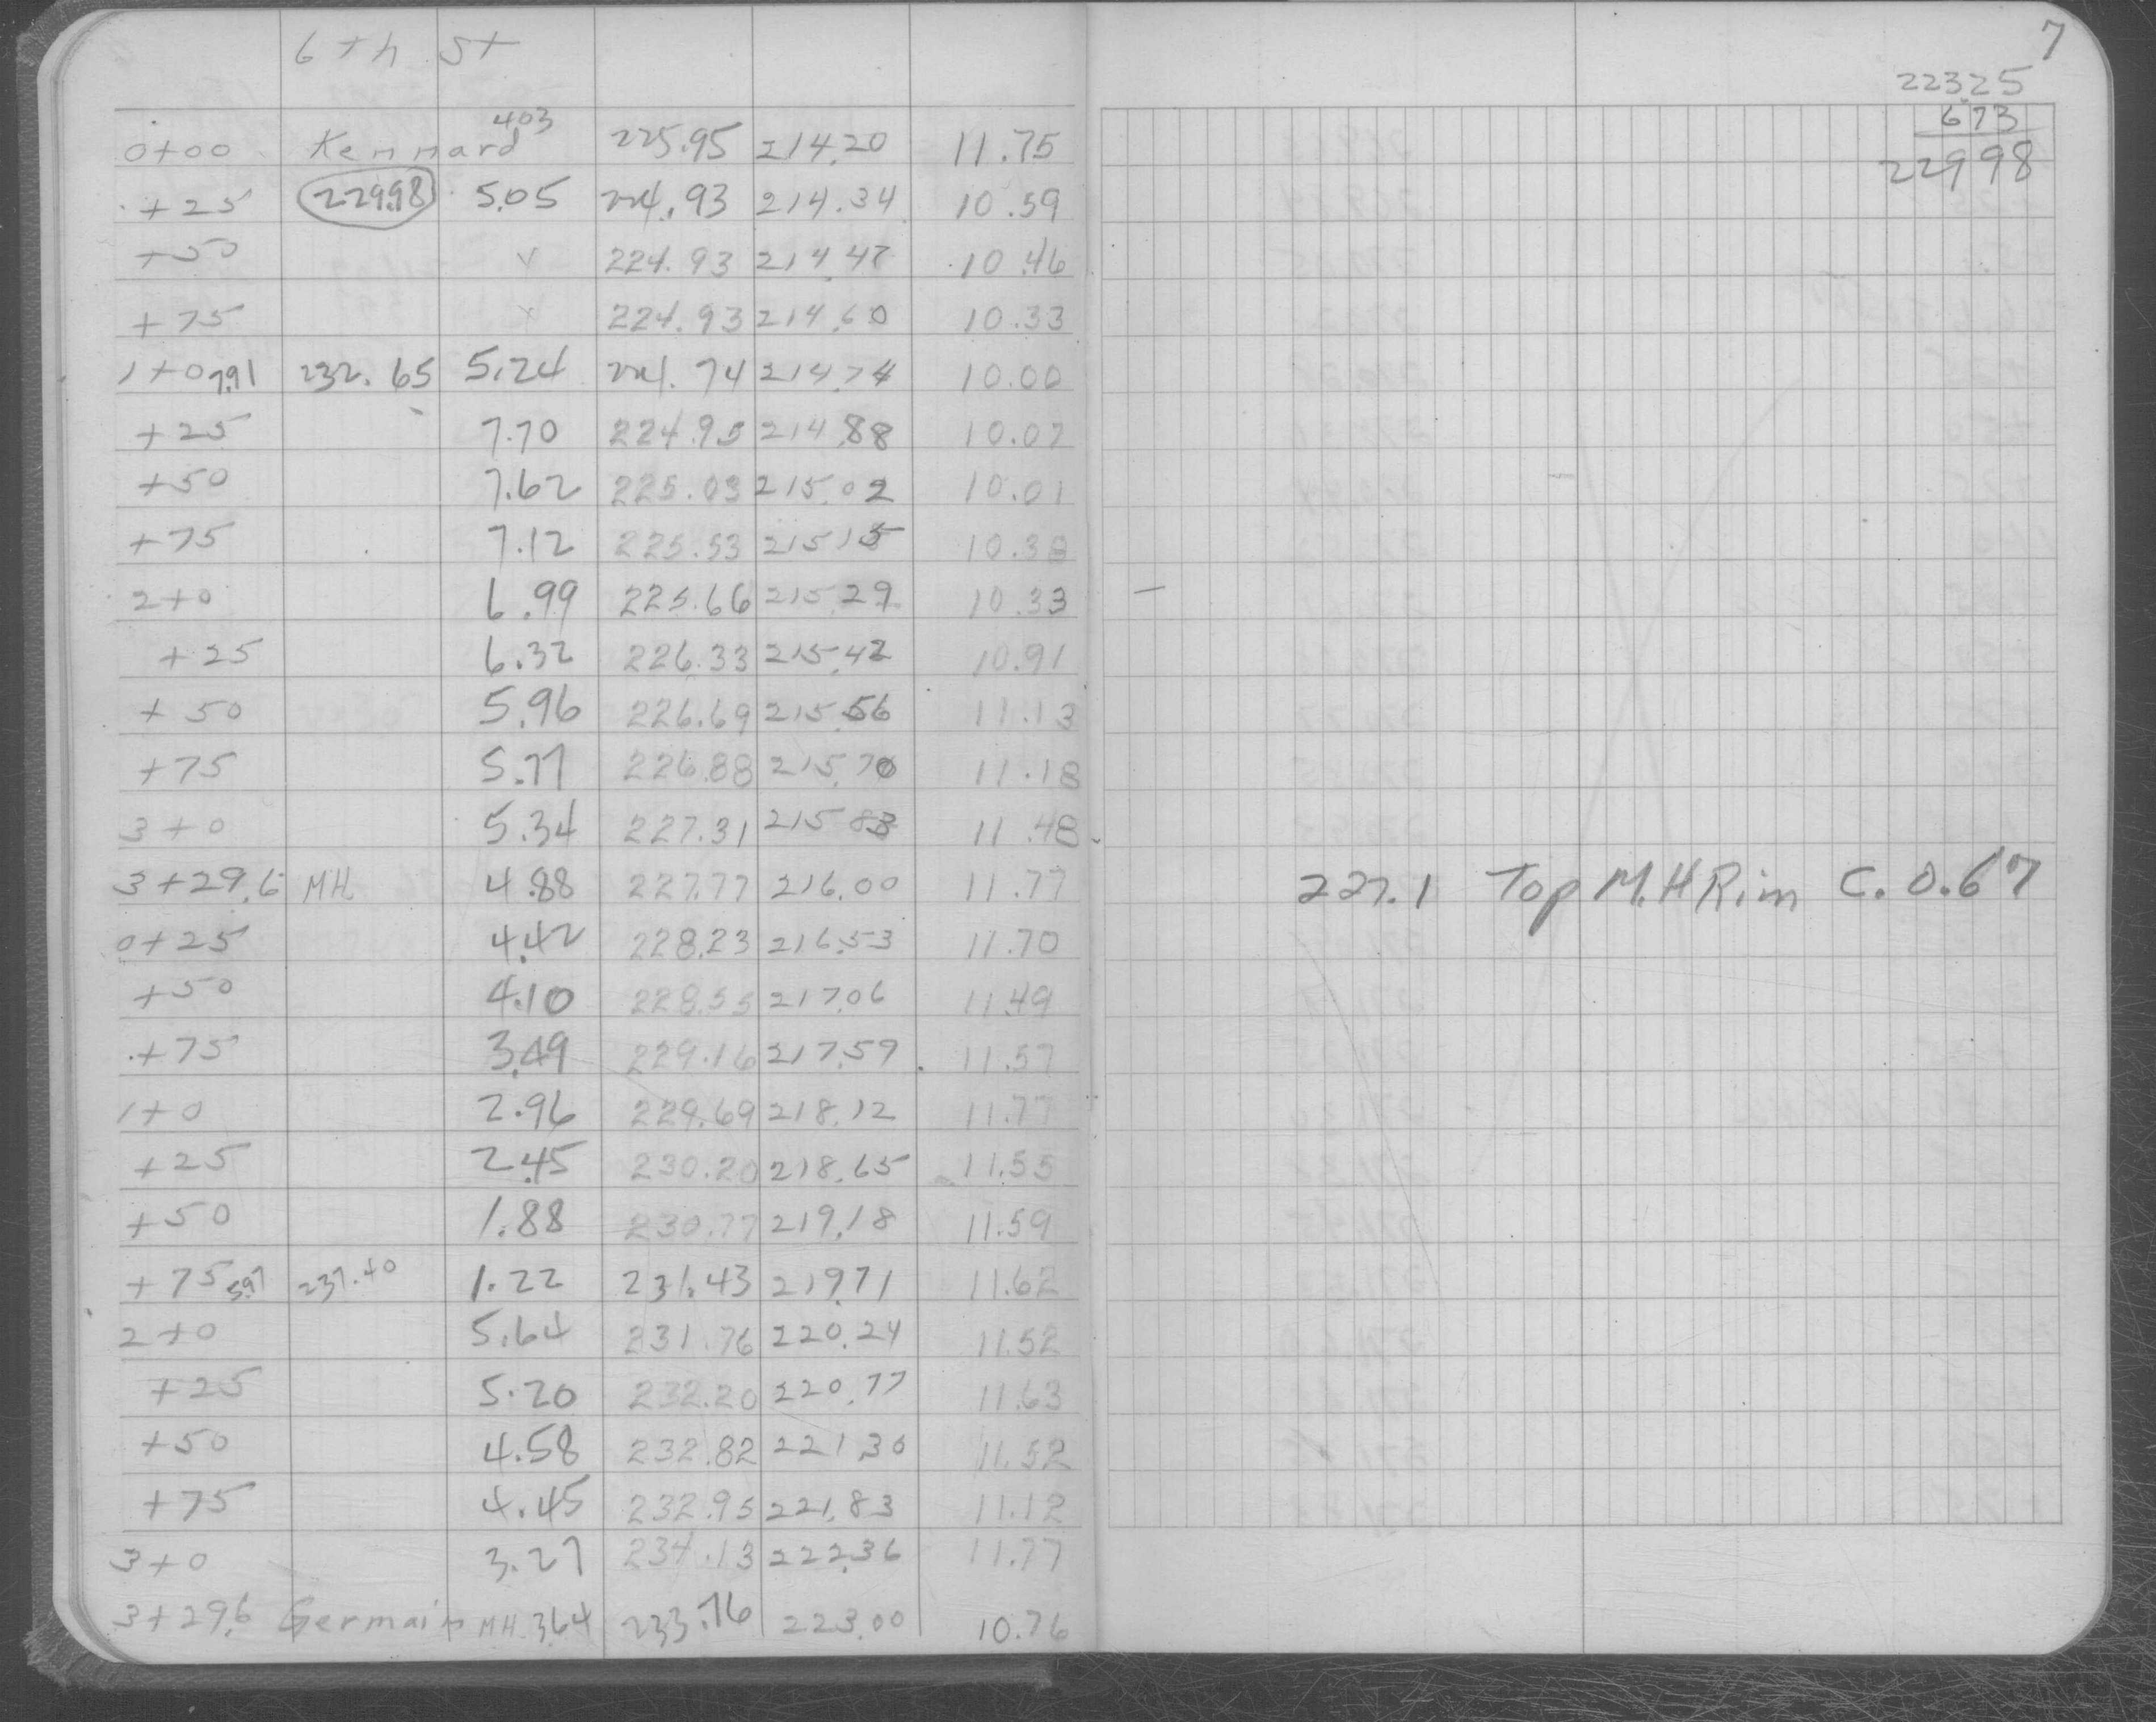 6th St
7
22325
673
22998
403
0+00 Kennard 225.95 214.20 11.75
+25 229.98 5.05 224.93 214.34 10.59
+50 v 224.93 214.47 10.46
+75 v 224.93 214.60 10.33
1+0 7.91 232.65 5.24 224.74 214.74 10.00
+25 7.70 224.95 214.88 10.07
+50 7.62 225.03 215.02 10.01
+75 7.12 225.53 215.15 10.38
2+0 6.99 225.66 215.29 10.33 —
+25 6.32 226.33 215.42 10.91
+50 5.96 226.69 215.56 11.13
+75 5.77 226.88 215.70 11.18
3+0 5.34 227.31 215.83 11.48
3+29.6 MH 4.88 227.77 216.00 11.77 227.1 Top M.H Rim C. 0.67
0+25 4.42 228.23 216.53 11.70
+50 4.10 228.55 217.06 11.49
+75 3.49 229.16 217.59 11.57
1+0 2.96 229.69 218.12 11.77
+25 2.45 230.20 218.65 11.55
+50 1.88 230.77 219.18 11.59
+75 5.97 237.40 1.22 231.43 219.71 11.62
2+0 5.64 231.76 220.24 11.52
+25 5.20 232.20 220.77 11.63
+50 4.58 232.82 221.30 11.52
+75 4.45 232.95 221.83 11.12
3+0 3.27 234.13 222.36 11.77
3+29.6 Germain MH 3.64 233.76 223.00 10.76